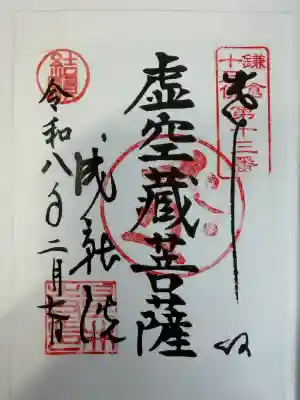 鎌倉
十三佛
第十三番
奉拝
虚空藏菩薩
成就院
結縁
令和八年二月七日